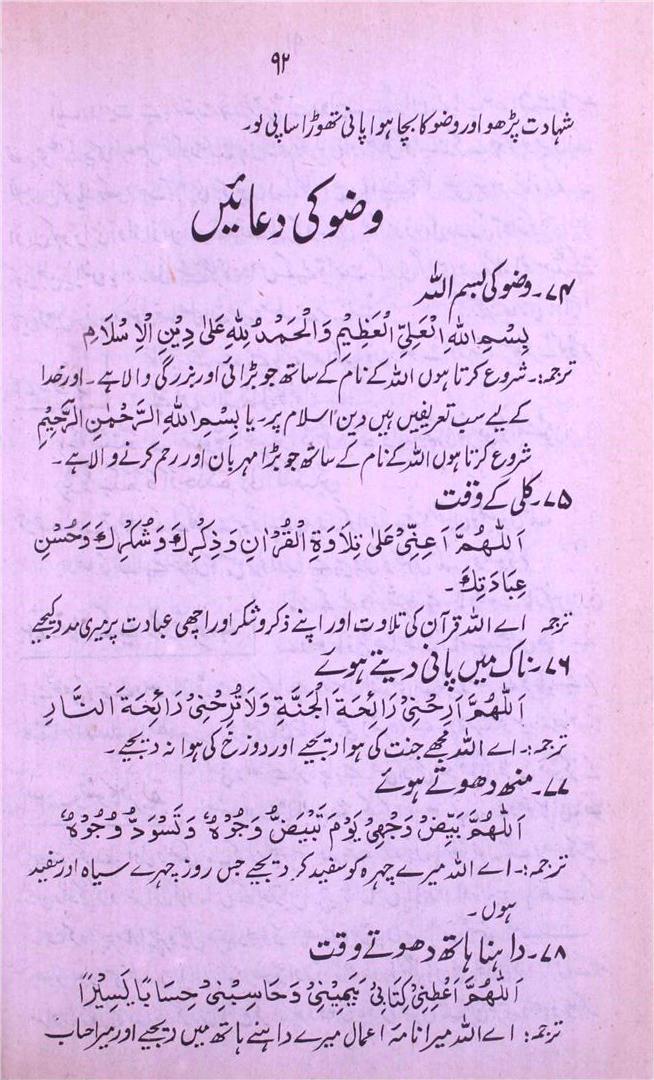 ۹۲
شہادت پڑھو اور وضو کا بچا ہوا پانی تھوڑا سا پی لو۔
وضو کی دعائیں
۷۴۔ وضو کی بسم اللہ
بِسْمِ اللهِ الْعَلِيِّ الْعَظِيْمِ وَالْحَمْدُ لِلّٰهِ عَلٰى دِيْنِ الْاِسْلَامِ
ترجمہ:۔ شروع کرتا ہوں اللہ کے نام کے ساتھ جو بڑائی اور بزرگی والا ہے۔ اور خدا
کے لیے سب تعریفیں ہیں دین اسلام پر۔ یا بِسْمِ اللهِ الرَّحْمٰنِ الرَّحِيْمِ
شروع کرتا ہوں اللہ کے نام کے ساتھ جو بڑا مہربان اور رحم کرنے والا ہے۔
۷۵۔ کلی کے وقت
اَللّٰهُمَّ اَعِنِّيْ عَلٰى تِلَاوَةِ الْقُرْاٰنِ وَذِكْرِكَ وَشُكْرِكَ وَحُسْنِ
عِبَادَتِكَ۔
ترجمہ اے اللہ قرآن کی تلاوت اور اپنے ذکر و شکر اور اچھی عبادت پر میری مدد کیجیے
۷۶۔ ناک میں پانی دیتے ہوئے
اَللّٰهُمَّ اَرِحْنِيْ رَائِحَةَ الْجَنَّةِ وَلَا تُرِحْنِيْ رَائِحَةَ النَّارِ
ترجمہ:۔ اے اللہ مجھے جنت کی ہوا دیجیے اور دوزخ کی ہوا نہ دیجیے۔
۷۷۔ منھ دھوتے ہوئے
اَللّٰهُمَّ بَيِّضْ وَجْهِيْ يَوْمَ تَبْيَضُّ وُجُوْهٌ وَتَسْوَدُّ وُجُوْهٌ
ترجمہ:۔ اے اللہ میرے چہرہ کو سفید کر دیجیے جس روز چہرے سیاہ اور سفید
ہوں۔
۷۸۔ داہنا ہاتھ دھوتے وقت
اَللّٰهُمَّ اَعْطِنِيْ كِتَابِيْ بِيَمِيْنِيْ وَحَاسِبْنِيْ حِسَابًا يَسِيْرًا
ترجمہ: اے اللہ میرا نامۂ اعمال میرے داہنے ہاتھ میں دیجیے اور میرا حساب